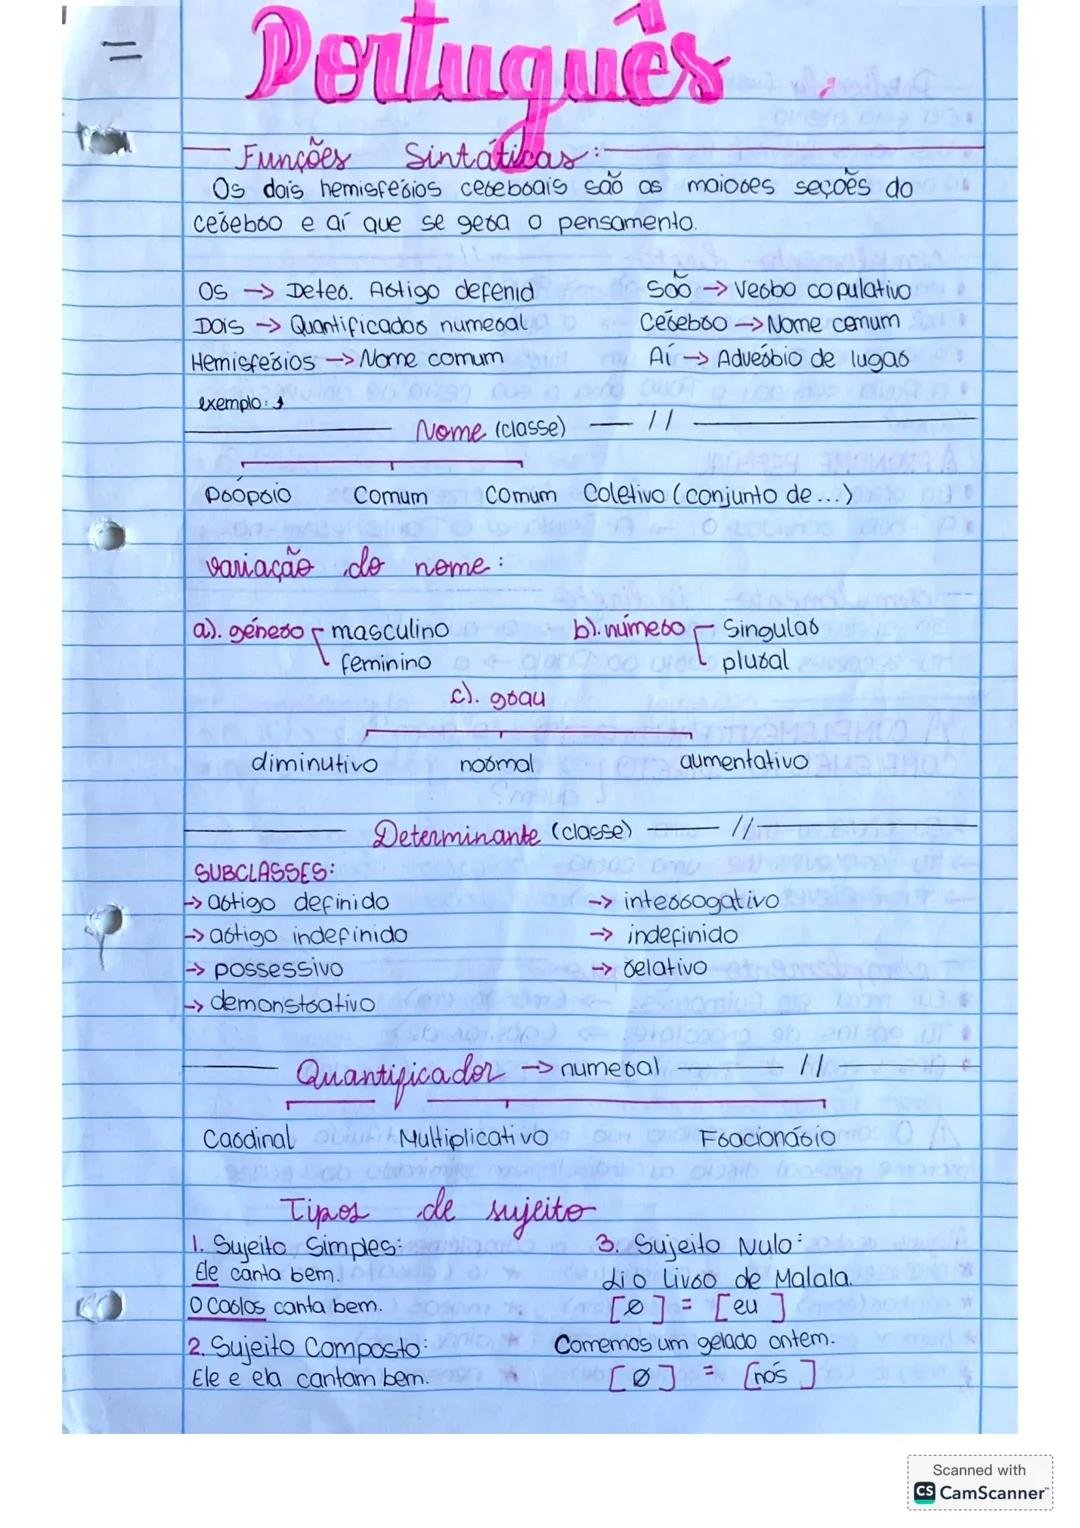 Português
Funções Sintáticas:
Os dois hemisferios cerebrais são as maiores seções do
cérebro e aí que se gera o pensamento.
Os → Deter. Artigo defenid
São → Verbo copulativo
Dois → Quantificador numeral
Cérebro → Nome comum
Hemisférios → Nome comum
Aí → Advérbio de lugar
exemplo:
Nome (classe) //
Próprio Comum Comum Coletivo (conjunto de...)
variação do nome:
a). género masculino
feminino
b). número Singular
plural
c). grau
diminutivo normal aumentativo
Determinante (classe) //
SUBCLASSES:
→ artigo definido → interrogativo
→ artigo indefinido → indefinido
→ possessivo → relativo
→ demonstrativo
Quantificador → numeral //
Cardinal Multiplicativo Fracionário
Tipos de sujeito
1. Sujeito Simples:
Ele canta bem.
O Carlos canta bem.
2. Sujeito Composto:
Ele e ela cantam bem.
3. Sujeito Nulo:
Li o livro de Malala.
[Ø] = [eu]
Comemos um gelado ontem.
[Ø] = [nós]
Scanned with
CS CamScanner